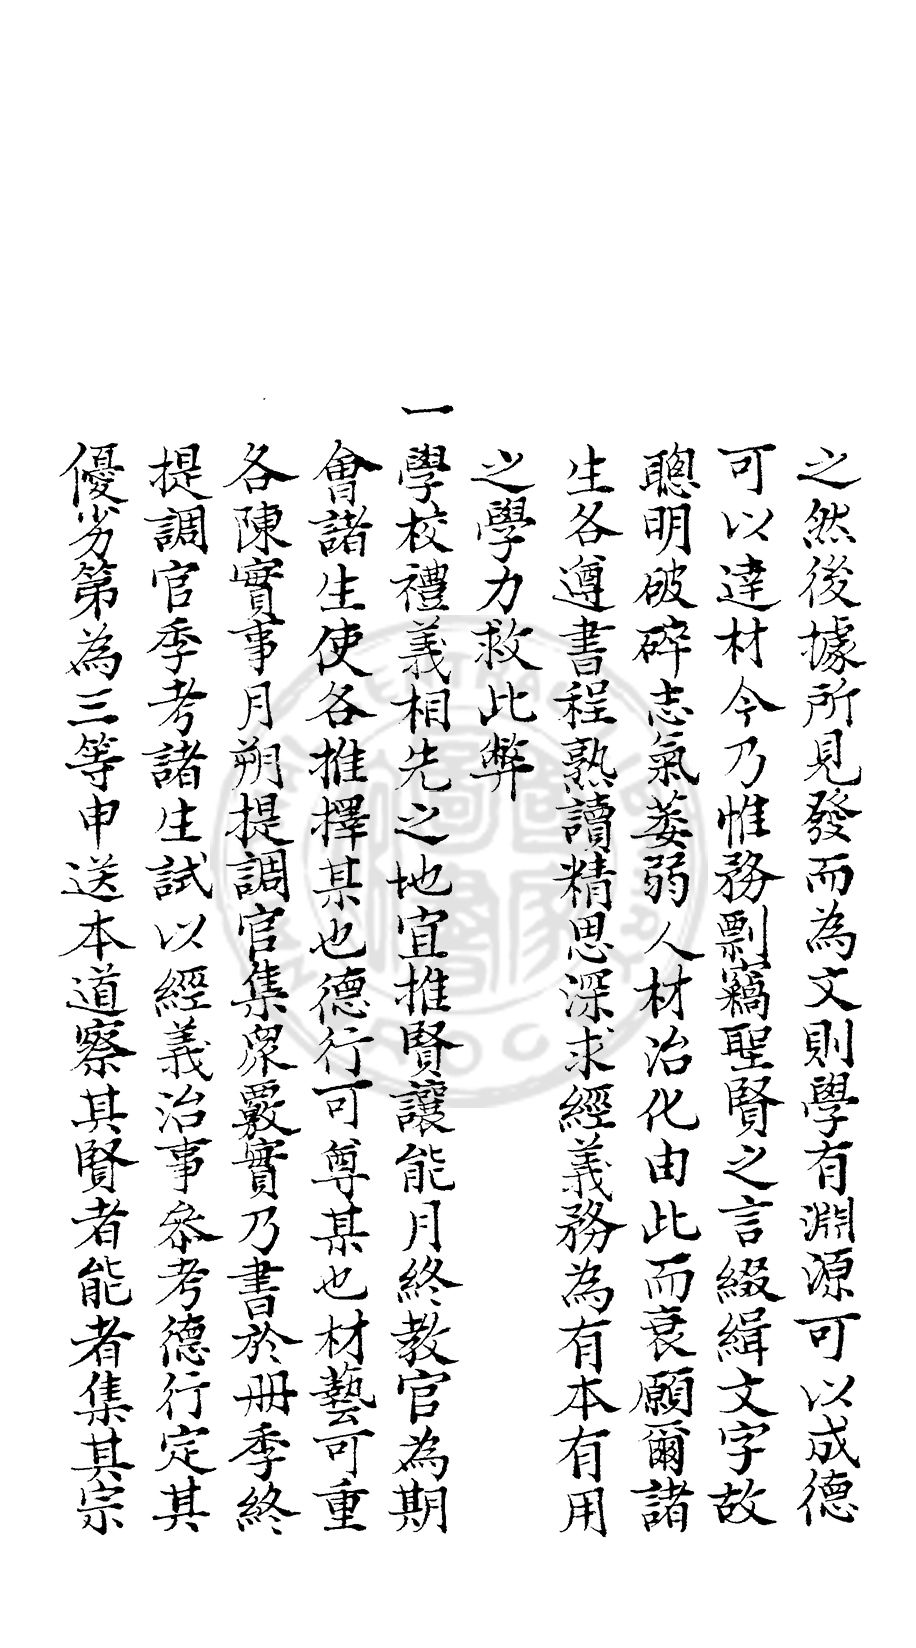 之然後據所見發而為文則學有淵源可以成德
可以達材今乃惟務剽竊聖賢之言綴緝文字故
聰明破碎志氣萎弱人材治化由此而衰願爾諸
生各遵書程熟讀精思深求經義務為有本有用
之學力救此弊
一學校禮義相先之地宜推賢讓能月終教官為期
會諸生使各推擇某也德行可尊某也材藝可重
各陳實事月朔提調官集眾覈實乃書於冊季終
提調官季考諸生試以經義治事叅考德行定其
優劣第為三等申送本道察其賢者能者集其宗